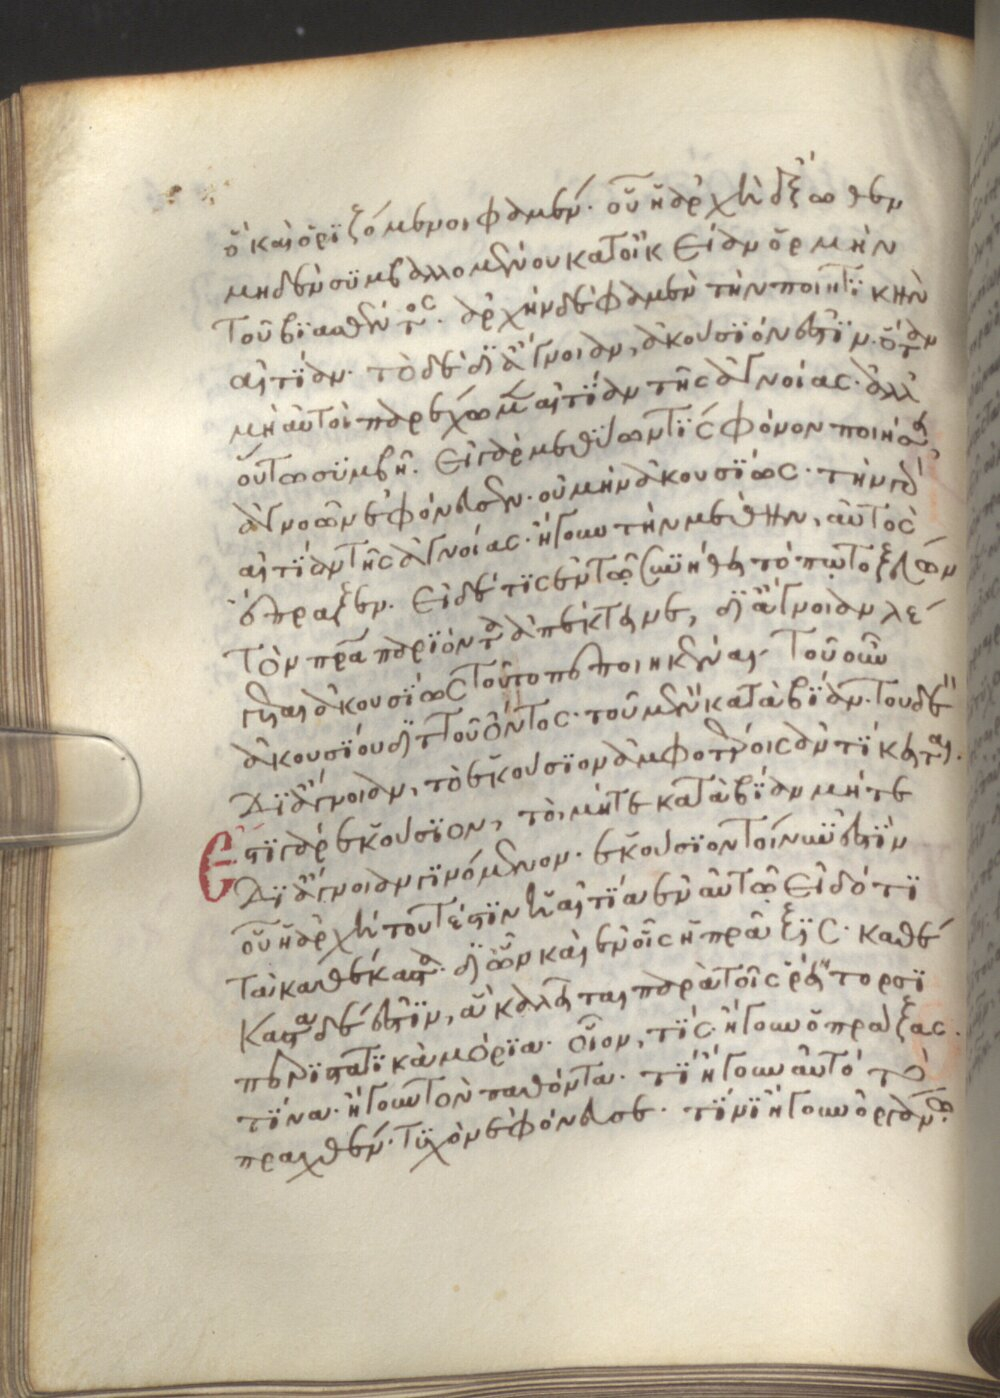 ὃ καὶ ὁριζόμενοι φαμέν· οὗ ἡ ἀρχὴ ἔξωθεν
μηδὲν συμβαλλομένου κατ' οἰκείαν ὁρμὴν
τοῦ βιασθέντος· ἀρχὴν δέ φαμεν τὴν ποιητικὴν
αἰτίαν· τὸ δὲ δι' ἄγνοιαν, ἀκούσιόν ἐστιν· ὅταν
μὴ αὐτοὶ παρέχωμεν αἰτίαν τῆς ἀγνοίας· ἀλλ'
οὕτω συμβῇ. εἰ γὰρ μεθύων τις φόνον ποιήσει
ἀγνοῶν ἐφόνευσεν· οὐ μὴν ἀκουσίως· τὴν γὰρ
αἰτίαν τῆς ἀγνοίας· ἤγουν τὴν μέθην, αὐτὸς
ἔπραξεν. εἰ δέ τις ἐν τῷ συνήθει τόπῳ τοξεύων
τὸν πατέρα παριόντα ἀπέκτεινε, δι' ἄγνοιαν λέ
γεται ἀκουσίως τοῦτο πεποιηκέναι· τοῦ οὖν
ἀκουσίου διττοῦ ὄντος· τοῦ μὲν κατὰ βίαν· τοῦ δὲ
δι' ἄγνοιαν, τὸ ἑκούσιον ἀμφοτέροις ἀντίκειται.
ἔστι γὰρ ἑκούσιον, τὸ μήτε κατὰ βίαν μήτε
δι' ἄγνοιαν γινόμενον· ἑκούσιον τοίνυν ἐστὶν
οὗ ἡ ἀρχὴ τουτέστιν ἡ αἰτία ἐν αὐτῷ εἰδότι
τὰ καθέκαστα· δι' ὧν καὶ ἐν οἷς ἡ πρᾶξις· καθέ
καστα δέ ἐστιν, ἃ καλεῖται παρὰ τοῖς ῥήτορσι
περιστατικὰ μόρια· οἷον, τίς· ἤγουν ὁ πράξας.
τίνα· ἤγουν τὸν παθόντα. τί ἤγουν αὐτὸ τὸ
πραχθέν· τυχὸν ἐφόνευσε· τίνι ἤγουν ὀργάνῳ